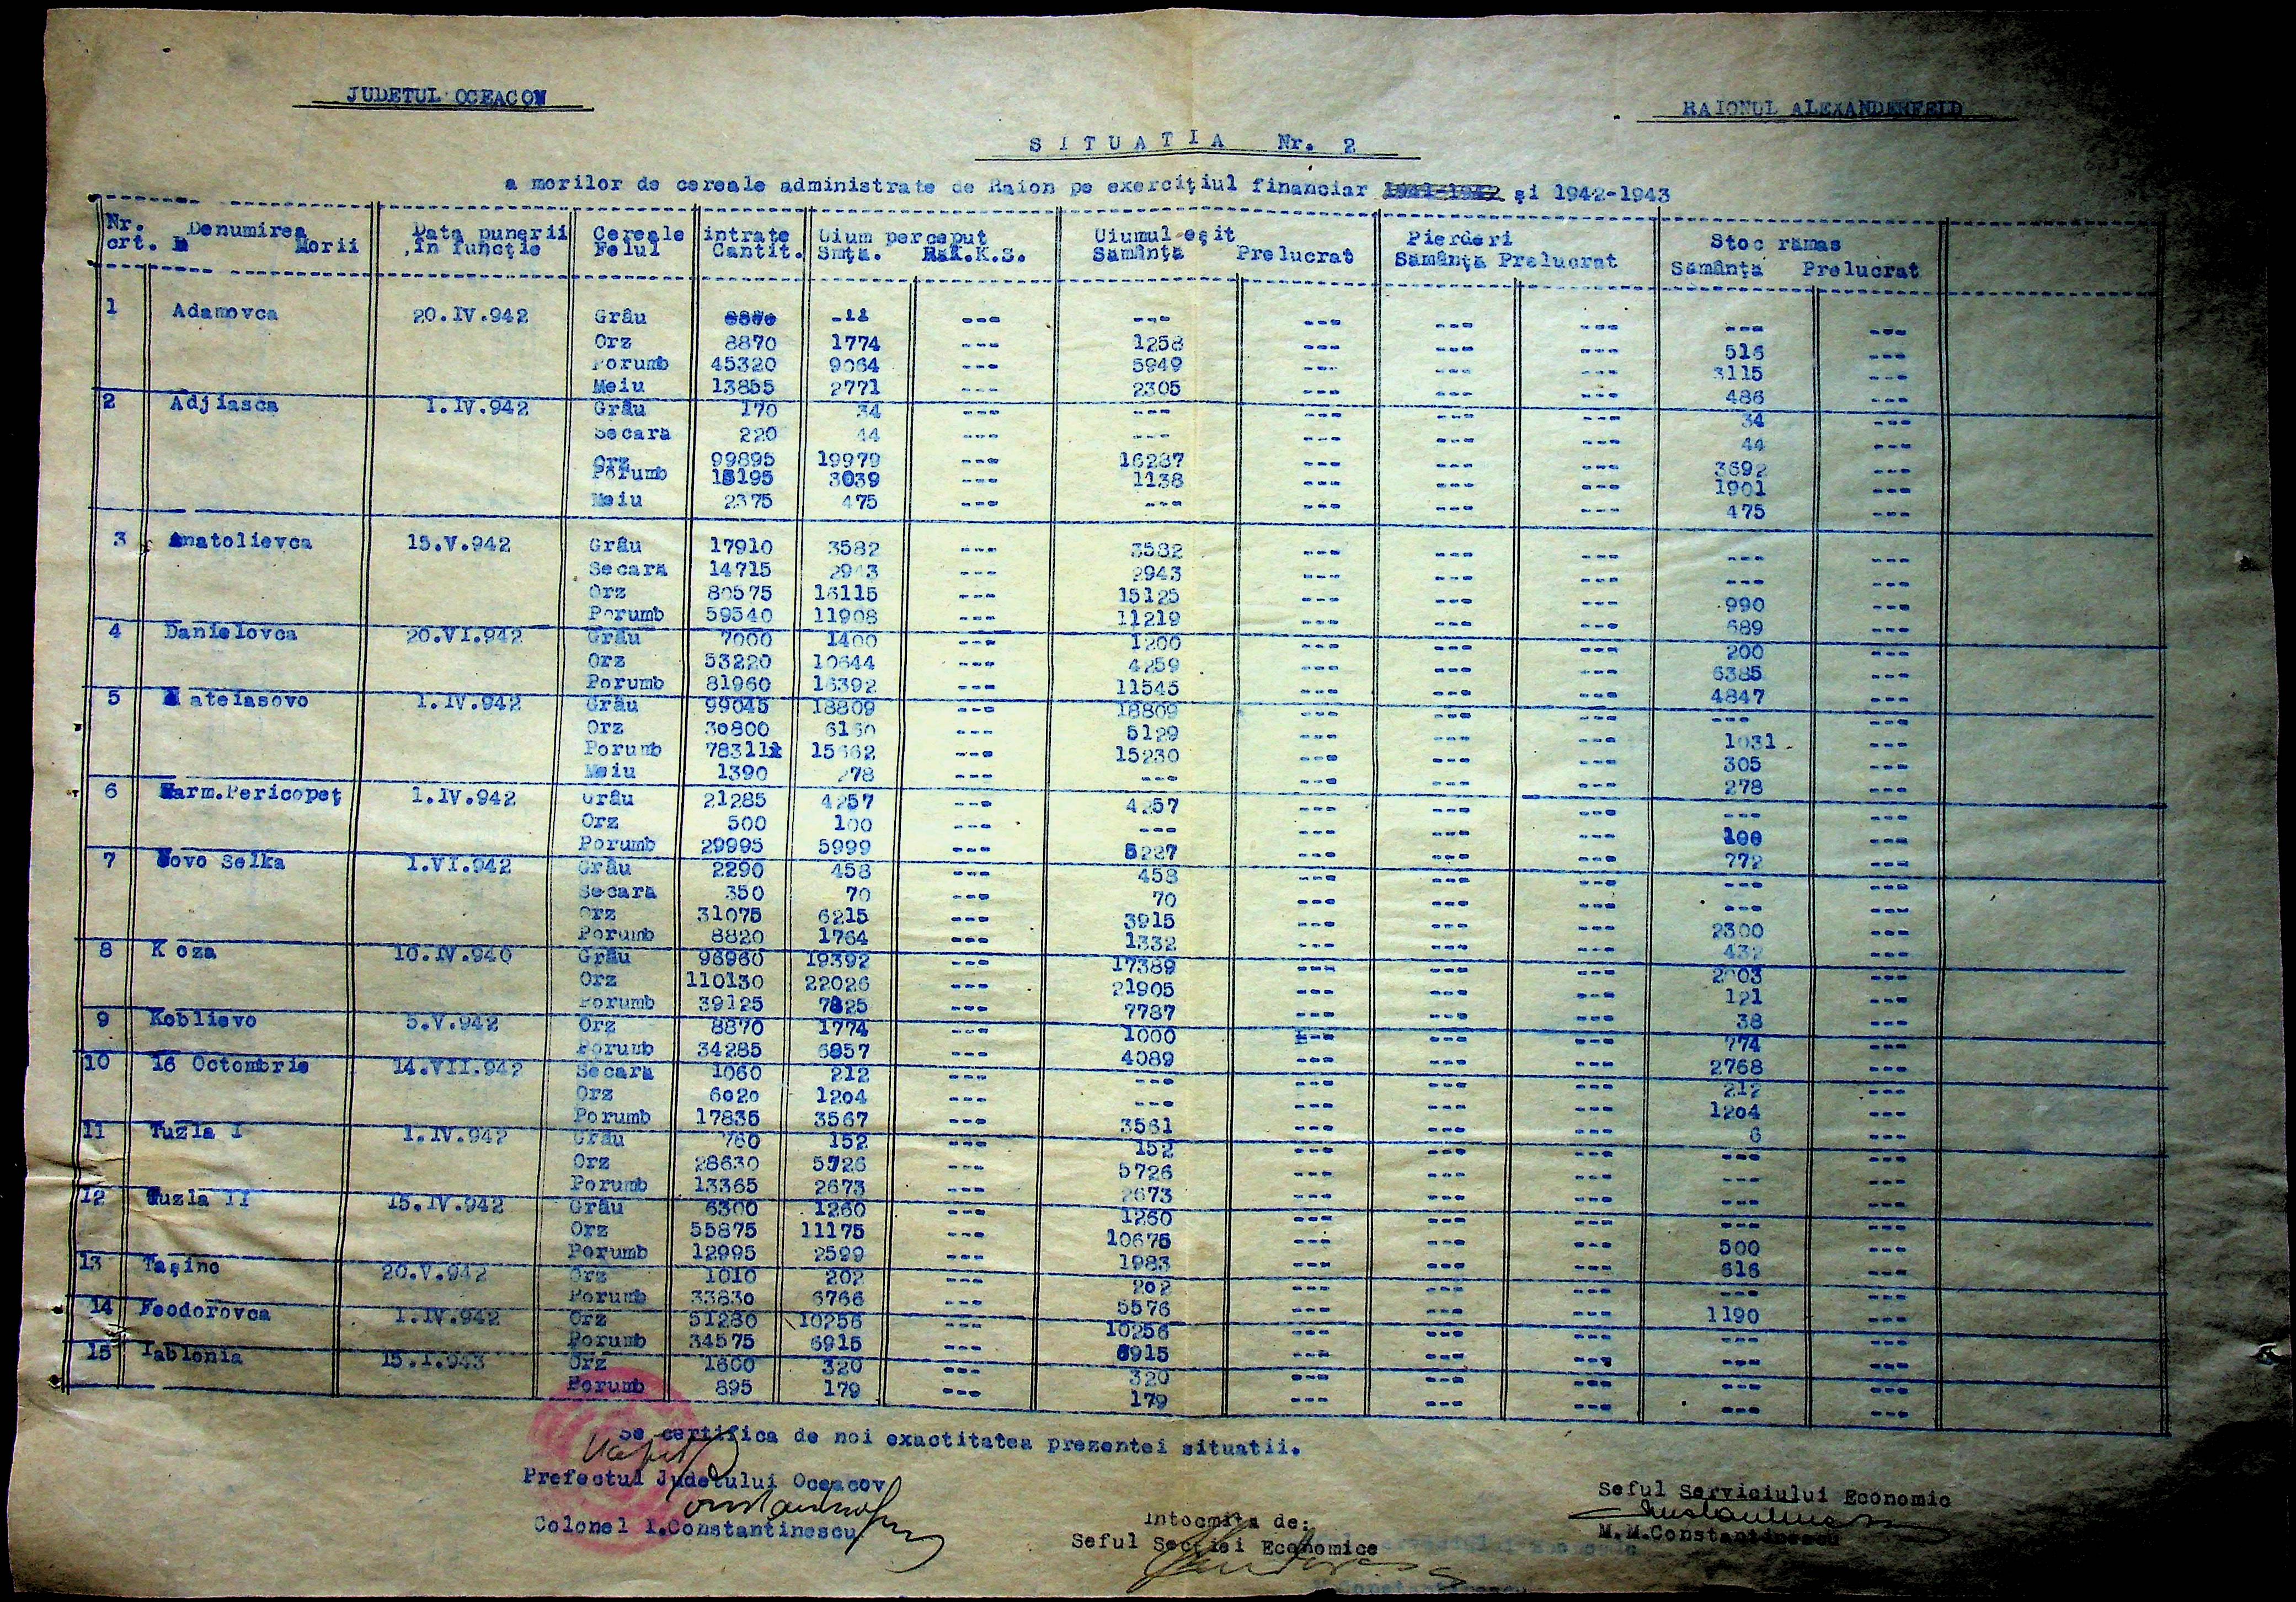 JUDETUL OCEACOV
RAIONUL ALEXANDERFELD
SITUATIA Nr. 2
a morilor de cereale administrate de Raion pe exercițiul financiar 1941-1942 și 1942-1943
Nr. Denumirea Data punerii Cereale intrate Uium perceput Uiumul eșit Pierderi Stoc rămas
crt. Morii în funcție Felul Cantit. Smța. K.S. Sămânță Prelucrat Sămânță Prelucrat Sămânță Prelucrat
1 Adamovca 20.IV.942 Grâu --- --- --- --- --- --- --- ---
Orz 8870 1774 --- 1258 --- --- --- 516 ---
Porumb 45320 9064 --- 5949 --- --- --- 3115 ---
Meiu 13855 2771 --- 2305 --- --- --- 486 ---
2 Adjiasca 1.IV.942 Grâu 170 34 --- --- --- --- --- 34 ---
Secară 220 44 --- --- --- --- --- 44 ---
Orz 99895 19979 --- 16287 --- --- --- 3692 ---
Porumb 15195 3039 --- 1138 --- --- --- 1901 ---
Meiu 2375 475 --- --- --- --- --- 475 ---
3 Anatolievca 15.V.942 Grâu 17910 3582 --- 3582 --- --- --- --- ---
Secară 14715 2943 --- 2943 --- --- --- --- ---
Orz 80575 16115 --- 15125 --- --- --- 990 ---
Porumb 59540 11908 --- 11219 --- --- --- 689 ---
4 Danielovca 20.VI.942 Grâu 7000 1400 --- 1200 --- --- --- 200 ---
Orz 53220 10644 --- 4259 --- --- --- 6385 ---
Porumb 81960 16392 --- 11545 --- --- --- 4847 ---
5 Mateiasovo 1.IV.942 Grâu 99045 18809 --- 18809 --- --- --- --- ---
Orz 30800 6160 --- 5129 --- --- --- 1031 ---
Porumb 78311 15662 --- 15230 --- --- --- 305 ---
Meiu 1390 278 --- --- --- --- --- 278 ---
6 Farm.Pericopeț 1.IV.942 Grâu 21285 4257 --- 4257 --- --- --- --- ---
Orz 500 100 --- --- --- --- --- 100 ---
Porumb 29995 5999 --- 5227 --- --- --- 772 ---
7 Novo Selka 1.VI.942 Grâu 2290 458 --- 458 --- --- --- --- ---
Secară 350 70 --- 70 --- --- --- --- ---
Orz 31075 6215 --- 3915 --- --- --- 2300 ---
Porumb 8820 1764 --- 1332 --- --- --- 432 ---
8 Koza 10.IV.940 Grâu 96960 19392 --- 17389 --- --- --- 2003 ---
Orz 110130 22026 --- 21905 --- --- --- 121 ---
Porumb 39125 7825 --- 7787 --- --- --- 38 ---
9 Koblievo 5.V.942 Orz 8870 1774 --- 1000 --- --- --- 774 ---
Porumb 34285 6857 --- 4089 --- --- --- 2768 ---
10 16 Octombrie 14.VII.942 Secară 1060 212 --- --- --- --- --- 212 ---
Orz 6020 1204 --- --- --- --- --- 1204 ---
Porumb 17835 3567 --- 3561 --- --- --- 6 ---
11 Tuzla I 1.IV.942 Grâu 760 152 --- 152 --- --- --- --- ---
Orz 28630 5726 --- 5726 --- --- --- --- ---
Porumb 13365 2673 --- 2673 --- --- --- --- ---
12 Tuzla II 15.IV.942 Grâu 6300 1260 --- 1260 --- --- --- --- ---
Orz 55875 11175 --- 10675 --- --- --- 500 ---
Porumb 12995 2599 --- 1983 --- --- --- 616 ---
13 Tașino 20.V.942 Orz 1010 202 --- 202 --- --- --- --- ---
Porumb 33830 6766 --- 5576 --- --- --- 1190 ---
14 Feodorovca 1.IV.942 Orz 51280 10256 --- 10256 --- --- --- --- ---
Porumb 34575 6915 --- 6915 --- --- --- --- ---
15 Iablonia 15.I.943 Orz 1600 320 --- 320 --- --- --- --- ---
Porumb 895 179 --- 179 --- --- --- --- ---
Se certifica de noi exactitatea prezentei situatii.
Prefectul Judetului Oceacov
Colonel I.Constantinescu
Intocmita de:
Seful Secției Economice
Seful Serviciului Economic
M.M.Constantinescu